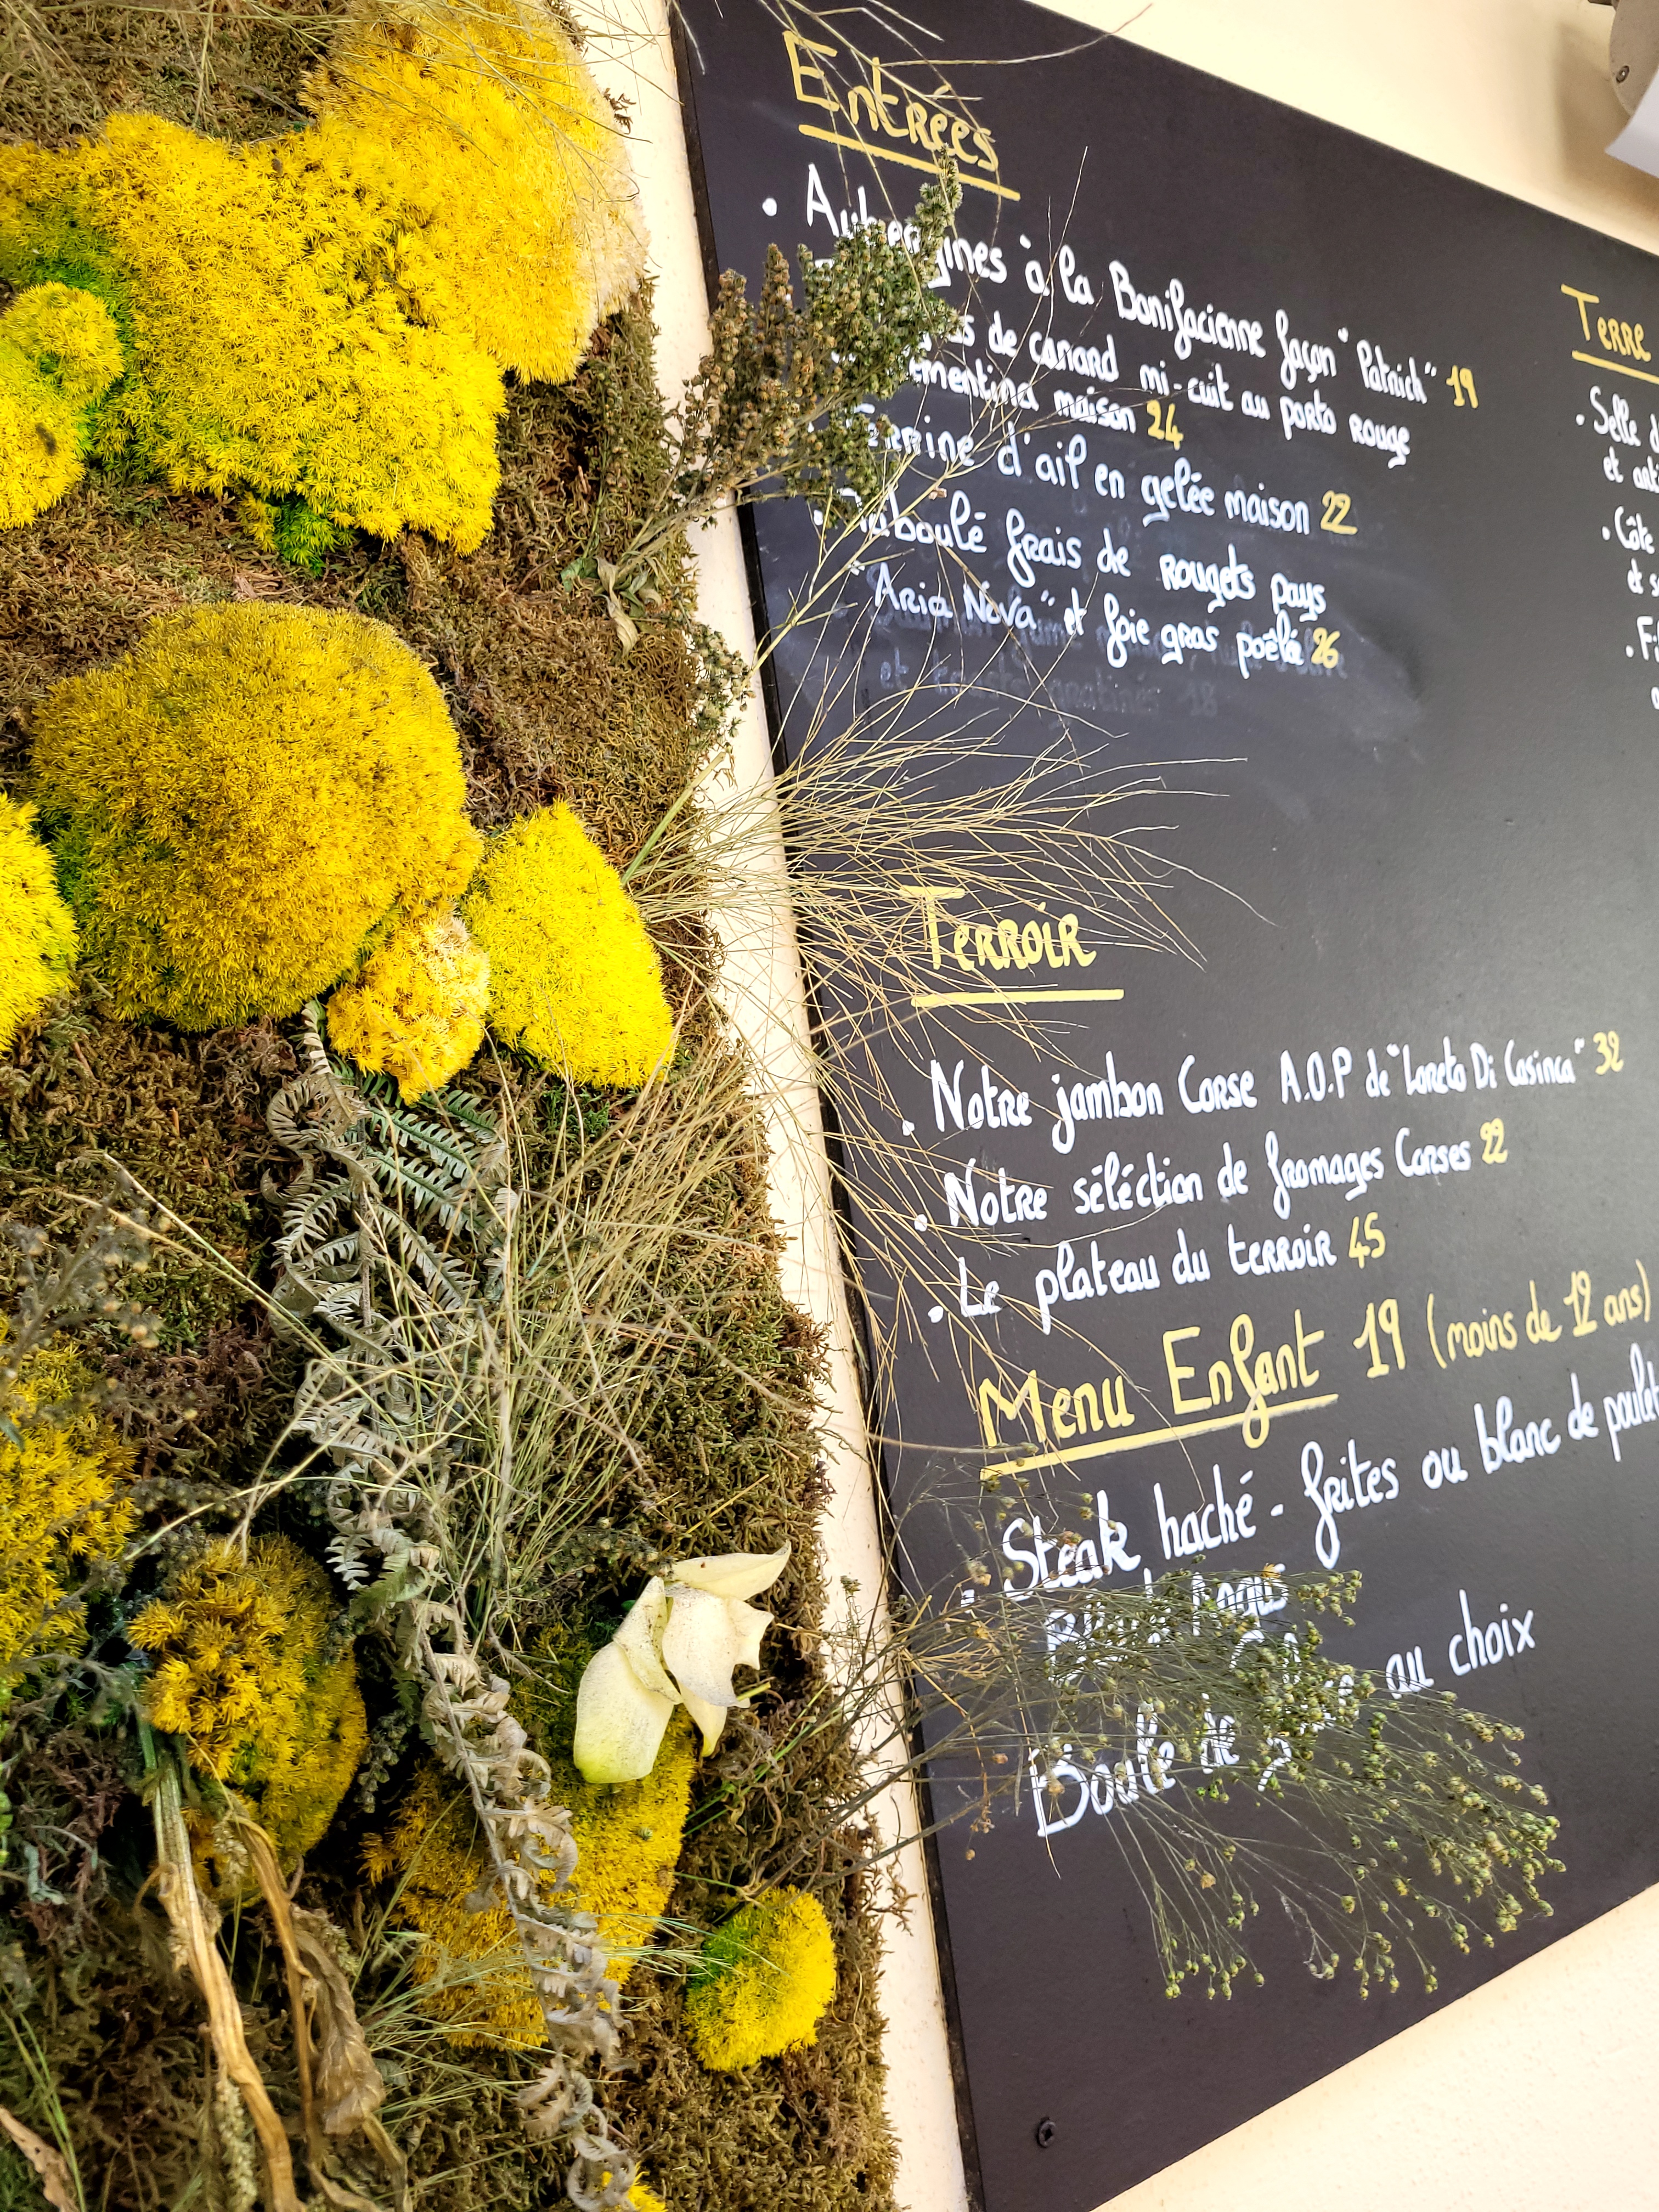 Entrées
• Aubergines à la Bonifacienne façon "Patrick" 19
de canard mi-cuit au porto rouge
maison 24
Terrine d'ail en gelée maison 22
• Taboulé frais de rougets pays
"Aria Nova" et foie gras poêlé 26
Terroir
• Notre jambon Corse A.O.P de "Loreto Di Casinca" 32
• Notre séléction de fromages Corses 22
• Le plateau du terroir 45
Menu Enfant 19 (moins de 12 ans)
• Steak haché - frites ou blanc de poulet
Boule de au choix
Terre
• Selle
et
• Côte
et
•